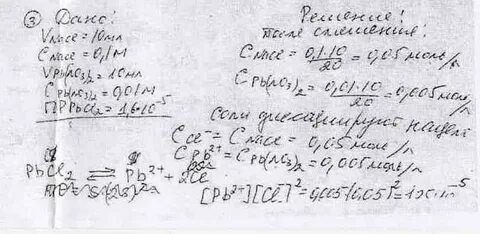 ③ Дано:
V NaCl = 10 мл
C NaCl = 0,1 М
V Pb(NO3)2 = 10 мл
C Pb(NO3)2 = 0,01 М
ПР PbCl2 = 1,6*10^-5
PbCl2 ⇌ Pb2+ + 2Cl-
Решение:
после смешения:
C NaCl = 0,1·10/20 = 0,05 моль/л
C Pb(NO3)2 = 0,01·10/20 = 0,005 моль/л
соли диссоциируют нацело
C Cl- = C NaCl = 0,05 моль/л
C Pb2+ = C Pb(NO3)2 = 0,005 моль/л
[Pb2+][Cl-]^2 = 0,005(0,05)^2 =